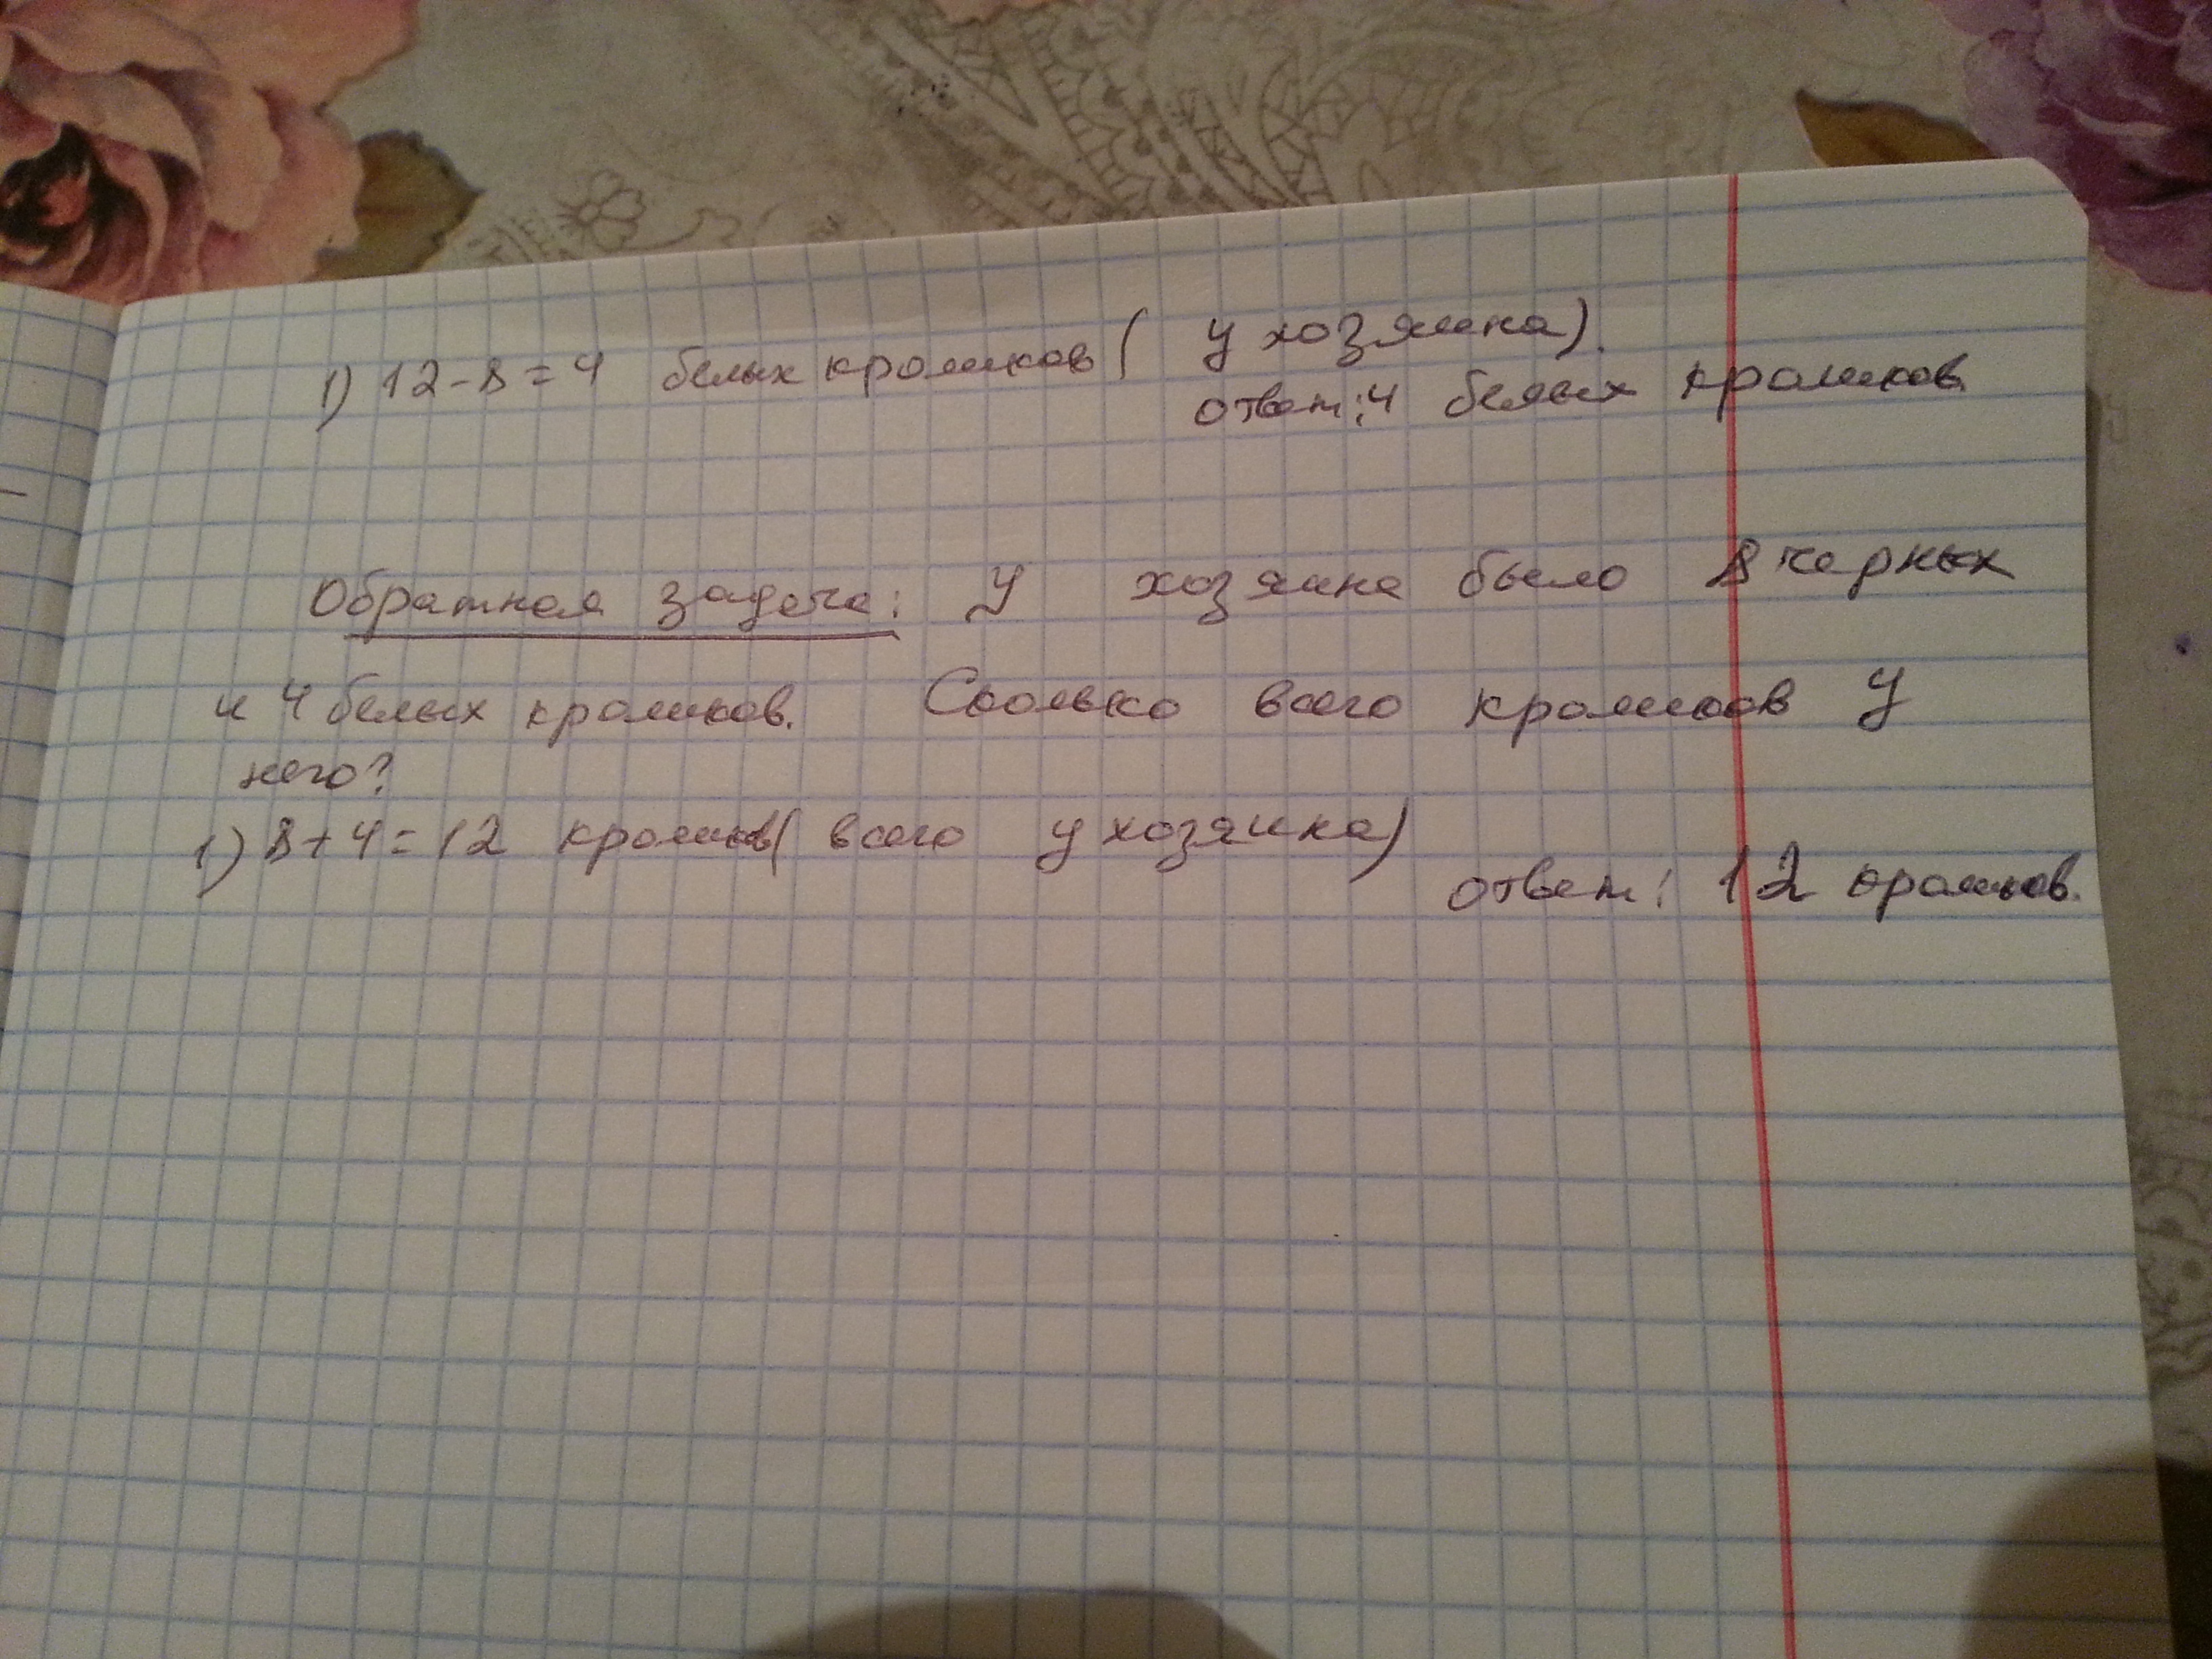 1) 12-8=4 белых кроликов ( у хозяина).
ответ: 4 белых кроликов
Обратная задача: У хозяина было 8 черных
и 4 белых кроликов. Сколько всего кроликов у
него?
1) 8+4=12 кроликов( всего у хозяина)
ответ: 12 кроликов.